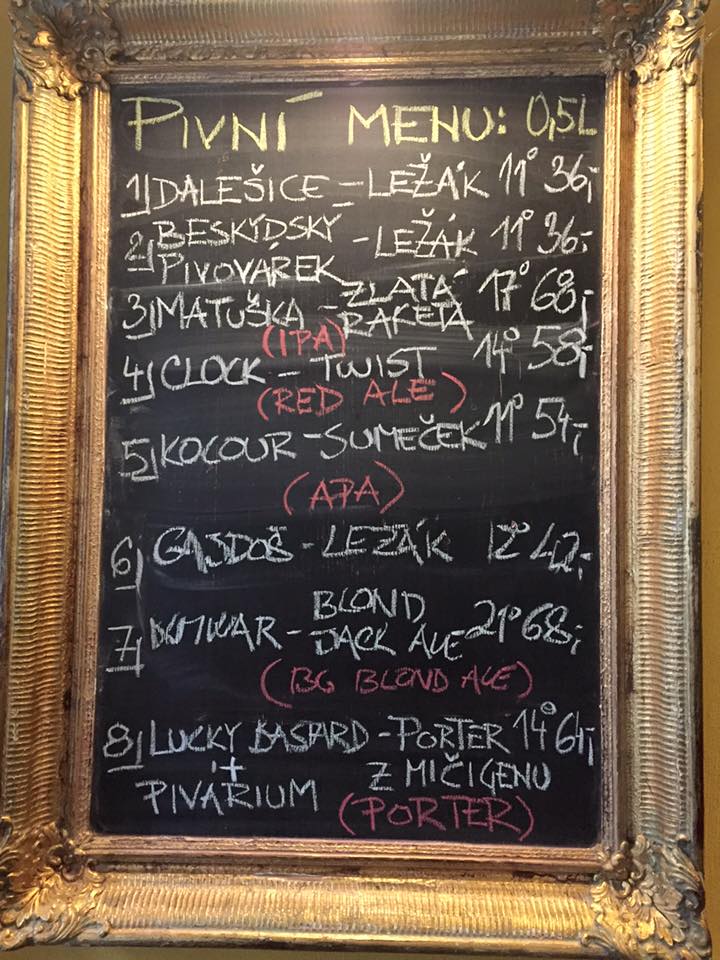 PIVNÍ MENU: 0,5L
1) DALEŠICE - LEŽÁK 11° 36,-
2) BESKÝDSKÝ PIVOVÁREK - LEŽÁK 11° 36,-
3) MATUŠKA - ZLATÁ RAKETA 17° 68,-
(IPA)
4) CLOCK - TWIST 14° 58,-
(RED ALE)
5) KOCOUR - SUMEČEK 11° 54,-
(APA)
6) GAJDOŠ - LEŽÁK 12° 42,-
7) - BLOND JACK ALE 21° 68,-
(BG BLOND ALE)
8) LUCKY BASTARD - PORTER 14° 64,-
+ Z MIČIGENU
PIVARIUM (PORTER)